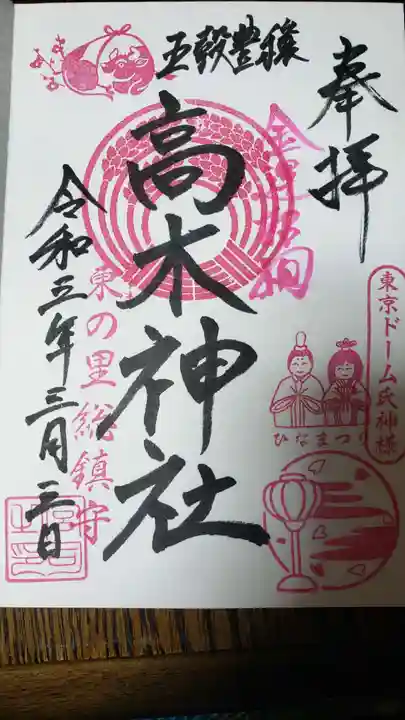 奉拝
五穀豊穣
高木神社
令和五年三月三日
東京ドーム氏神様
ひなまつり
の里総鎮守